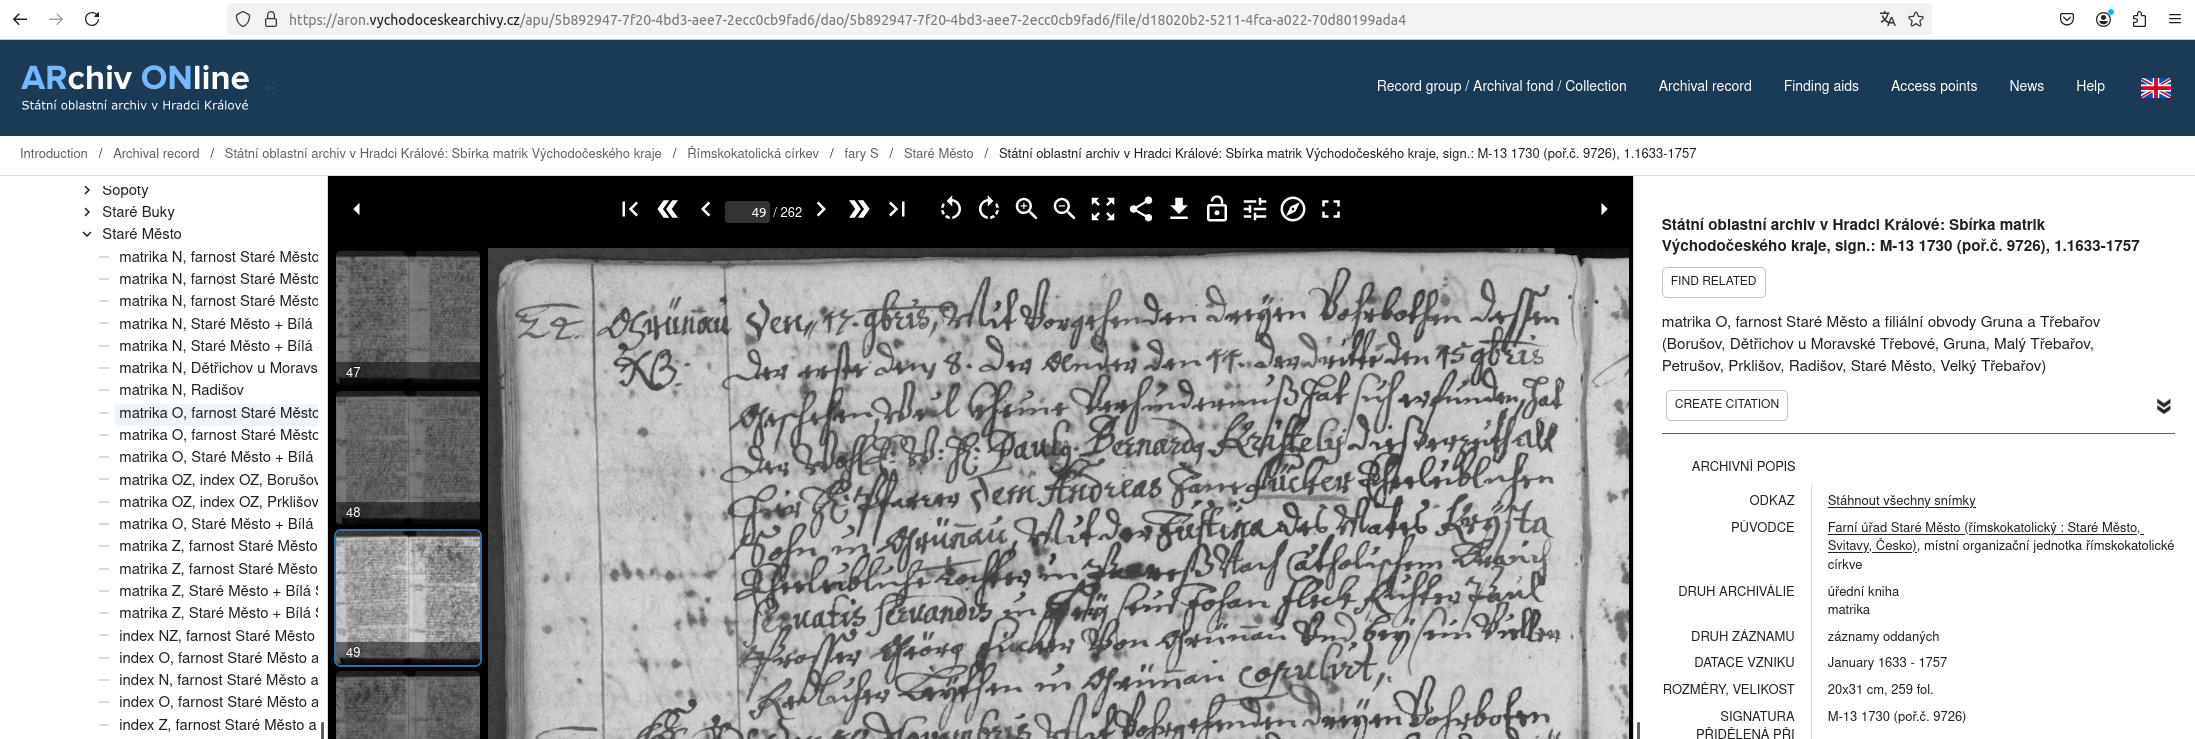 https://aron.vychodoceskearchivy.cz/apu/5b892947-7f20-4bd3-aee7-2ecc0cb9fad6/dao/5b892947-7f20-4bd3-aee7-2ecc0cb9fad6/file/d18020b2-5211-4fca-a022-70d80199ada4
ARchiv ONline
Státní oblastní archiv v Hradci Králové
Record group / Archival fond / Collection
Archival record
Finding aids
Access points
News
Help
Introduction / Archival record / Státní oblastní archiv v Hradci Králové: Sbírka matrik Východočeského kraje / Římskokatolická církev / fary S / Staré Město / Státní oblastní archiv v Hradci Králové: Sbírka matrik Východočeského kraje, sign.: M-13 1730 (poř.č. 9726), 1.1633-1757
Sopoty
Staré Buky
Staré Město
matrika N, farnost Staré Město
matrika N, farnost Staré Město
matrika N, farnost Staré Město
matrika N, Staré Město + Bílá
matrika N, Staré Město + Bílá
matrika N, Dětřichov u Moravs
matrika N, Radišov
matrika O, farnost Staré Město
matrika O, farnost Staré Město
matrika O, Staré Město + Bílá
matrika OZ, index OZ, Borušov
matrika OZ, index OZ, Prklišov
matrika O, Staré Město + Bílá
matrika Z, farnost Staré Město
matrika Z, farnost Staré Město
matrika Z, Staré Město + Bílá S
matrika Z, Staré Město + Bílá S
index NZ, farnost Staré Město
index O, farnost Staré Město a
index N, farnost Staré Město a
index O, farnost Staré Město a
index Z, farnost Staré Město a
49 / 262
47
48
49
Grünau Den 17. 9bris, Mit Vorgehenden dreyen Vohrbothen dessen
der erste den 8. der Ander den 11. der dritte den 15 9bris
geschehen Weil Keine Verhindernuß hat sich erfunden, hat
der Wohl E. W. H. Paulg Bernardg
Herr Pfarrer Dem Andreas Ehrleiblichen
Sohn in Grünau, Mit der Justina des Mates
Ehrleibliche tochter in Nach Catholischem
Servatis Servandis in sein Johan Fleck Richter Paul
Prosser Georg Von Grünau Und bey
in Grünau copulirt,
Mit Vorgehenden dreyen Vohrbothen
Státní oblastní archiv v Hradci Králové: Sbírka matrik
Východočeského kraje, sign.: M-13 1730 (poř.č. 9726), 1.1633-1757
FIND RELATED
matrika O, farnost Staré Město a filiální obvody Gruna a Třebařov
(Borušov, Dětřichov u Moravské Třebové, Gruna, Malý Třebařov,
Petrušov, Prklišov, Radišov, Staré Město, Velký Třebařov)
CREATE CITATION
ARCHIVNÍ POPIS
ODKAZ Stáhnout všechny snímky
PŮVODCE Farní úřad Staré Město (římskokatolický : Staré Město,
Svitavy, Česko), místní organizační jednotka římskokatolické
církve
DRUH ARCHIVÁLIE úřední kniha
matrika
DRUH ZÁZNAMU záznamy oddaných
DATACE VZNIKU January 1633 - 1757
ROZMĚRY, VELIKOST 20x31 cm, 259 fol.
SIGNATURA M-13 1730 (poř.č. 9726)
PŘIDĚLENÁ PŘI